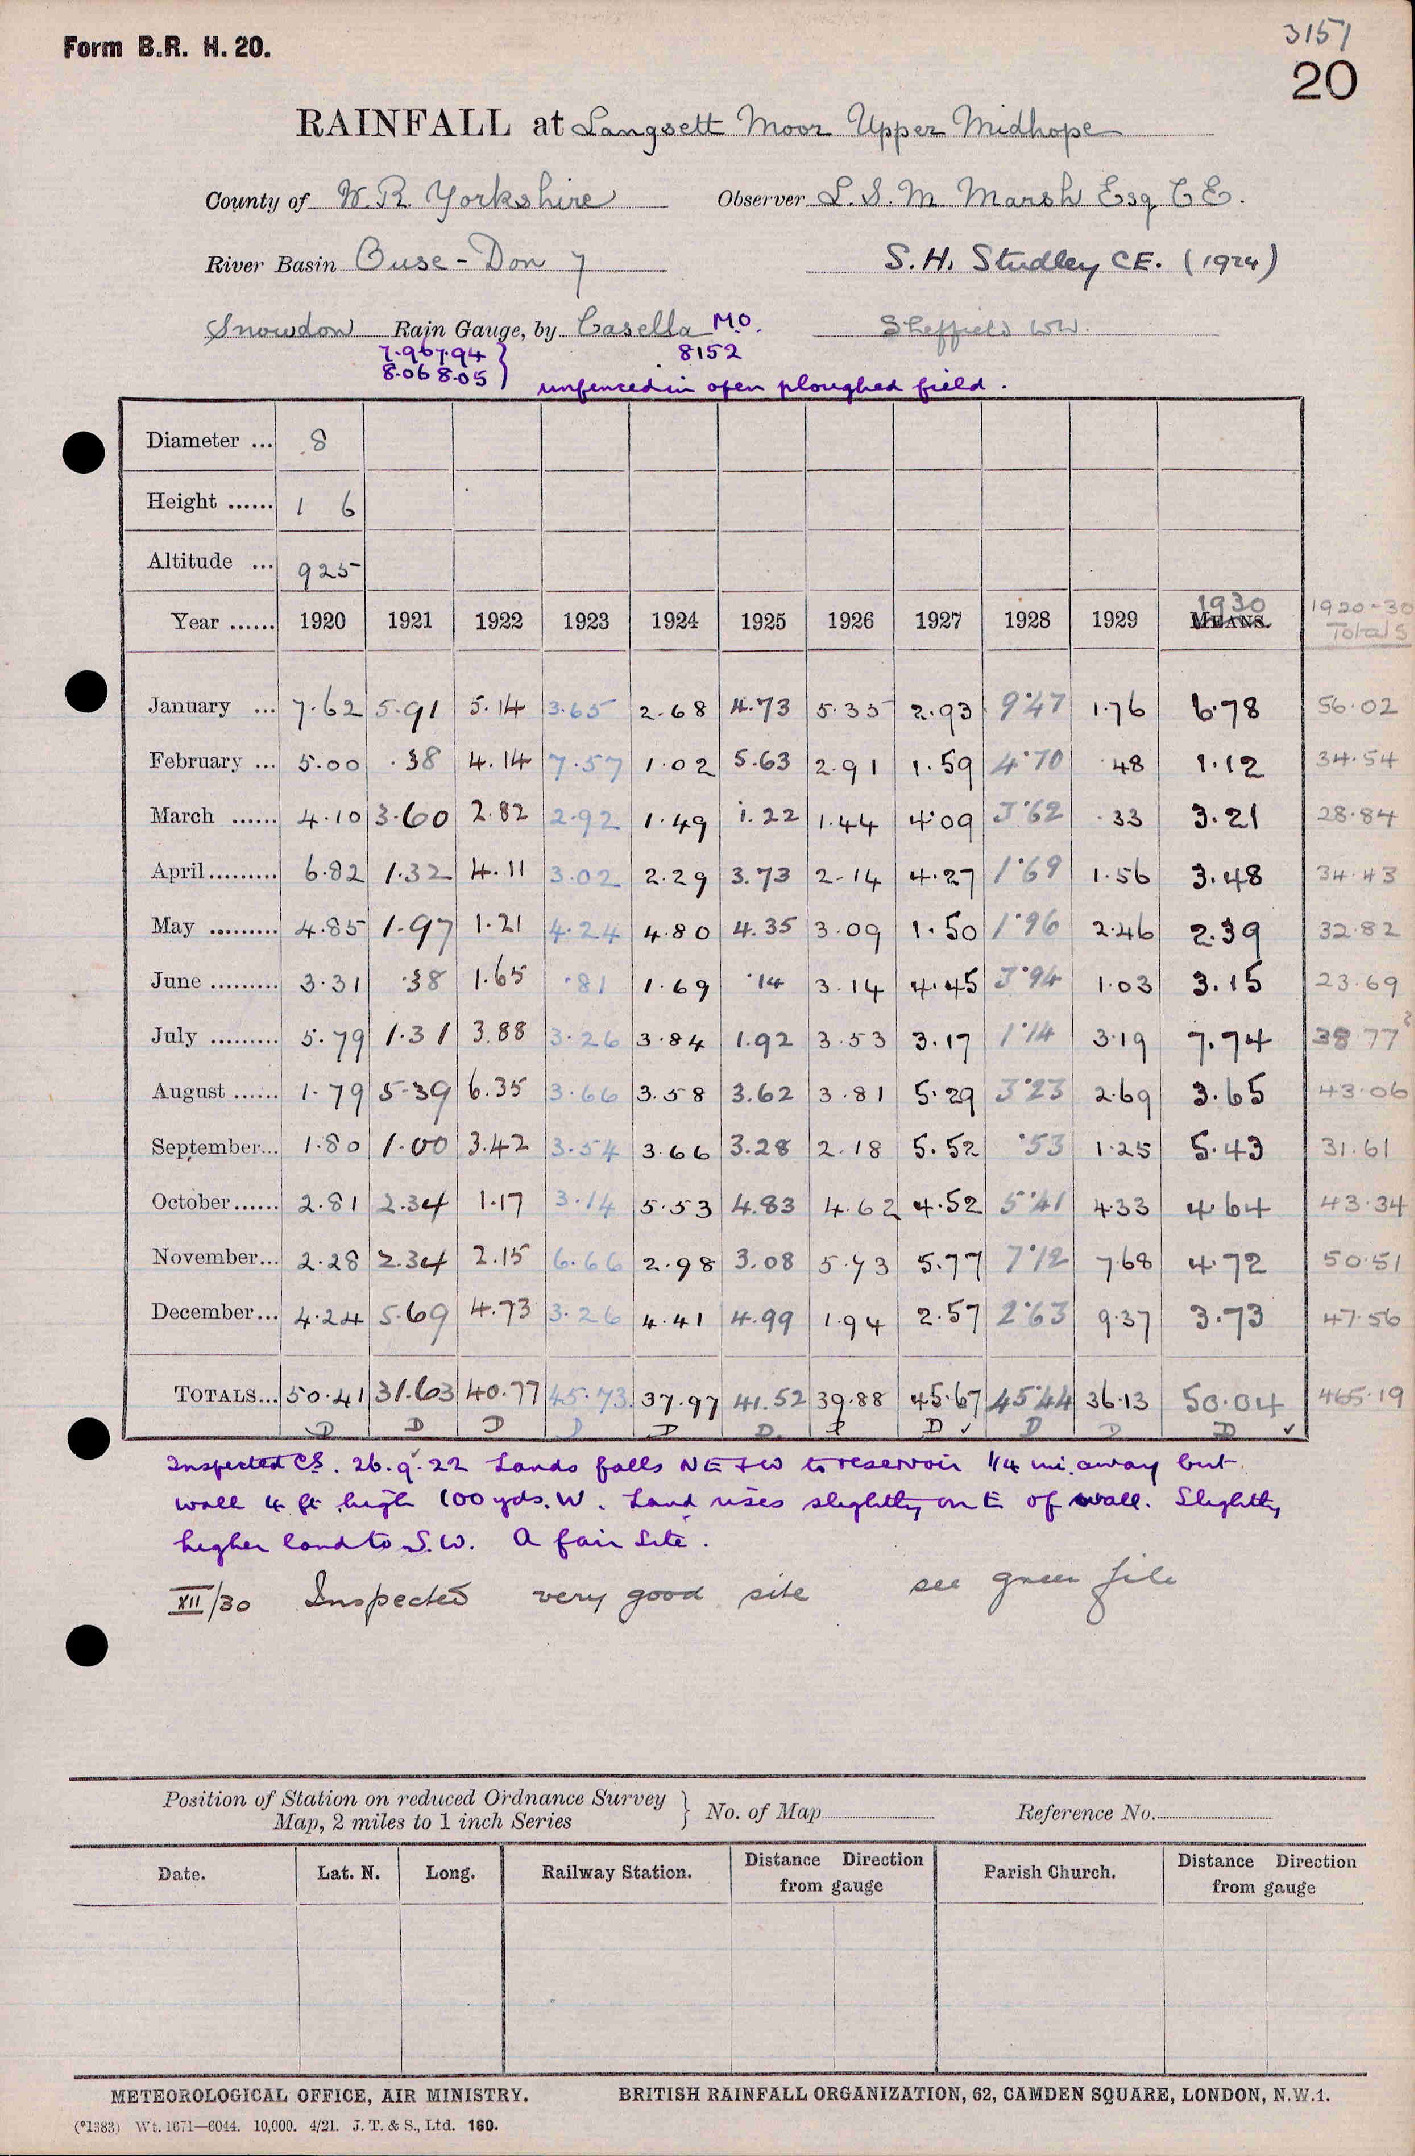 3151
Form B.R. H. 20.
20
RAINFALL at Langsett Moor Upper Midhope
County of W. R. Yorkshire Observer L. S. M. Marsh Esq C E.
River Basin Ouse - Don 7 S. H. Studley C.E. (1924)
Snowdon Rain Gauge, by Casella M.O. Sheffield WW.
7.96 7.94 } 8152
8.06 8.05 } unfenced in open ploughed field.
Diameter ... 8
Height ...... 1 6
Altitude ... 925
Year ...... 1920 1921 1922 1923 1924 1925 1926 1927 1928 1929 MEANS. 1930 1920-30 Totals
January ... 7.62 5.91 5.14 3.65 2.68 4.73 5.35 2.93 9.47 1.76 6.78 56.02
February ... 5.00 .38 4.14 7.57 1.02 5.63 2.91 1.59 4.70 .48 1.12 34.54
March ...... 4.10 3.60 2.82 2.92 1.49 1.22 1.44 4.09 3.62 .33 3.21 28.84
April......... 6.82 1.32 4.11 3.02 2.29 3.73 2.14 4.27 1.69 1.56 3.48 34.43
May ......... 4.85 1.97 1.21 4.24 4.80 4.35 3.09 1.50 1.96 2.46 2.39 32.82
June ......... 3.31 .38 1.65 .81 1.69 .14 3.14 4.45 3.94 1.03 3.15 23.69
July ......... 5.79 1.31 3.88 3.26 3.84 1.92 3.53 3.17 1.14 3.19 7.74 38.77
August ...... 1.79 5.39 6.35 3.66 3.58 3.62 3.81 5.29 3.23 2.69 3.65 43.06
September... 1.80 1.00 3.42 3.54 3.66 3.28 2.18 5.52 .53 1.25 5.43 31.61
October...... 2.81 2.34 1.17 3.14 5.53 4.83 4.62 4.52 5.41 4.33 4.64 43.34
November... 2.28 2.34 2.15 6.66 2.98 3.08 5.73 5.77 7.12 7.68 4.72 50.51
December... 4.24 5.69 4.73 3.26 4.41 4.99 1.94 2.57 2.63 9.37 3.73 47.56
TOTALS... 50.41 31.63 40.77 45.73 37.97 41.52 39.88 45.67 45.44 36.13 50.04 465.19
D D D D D D. D D ✓ D D D ✓
Inspected C.S. 26.9.22 Lands falls NE + W to reservoir 1/4 mi. away but
wall 4 ft high 100 yds. W. Land rises slightly on E of wall. Slightly
higher land to S.W. A fair site.
XII/30 Inspected very good site see green file
Position of Station on reduced Ordnance Survey
Map, 2 miles to 1 inch Series } No. of Map Reference No.
Date. Lat. N. Long. Railway Station. Distance Direction from gauge Parish Church. Distance Direction from gauge
METEOROLOGICAL OFFICE, AIR MINISTRY. BRITISH RAINFALL ORGANIZATION, 62, CAMDEN SQUARE, LONDON, N.W.1.
(*1383) Wt. 1671—6044. 10,000. 4/21. J. T. & S., Ltd. 160.